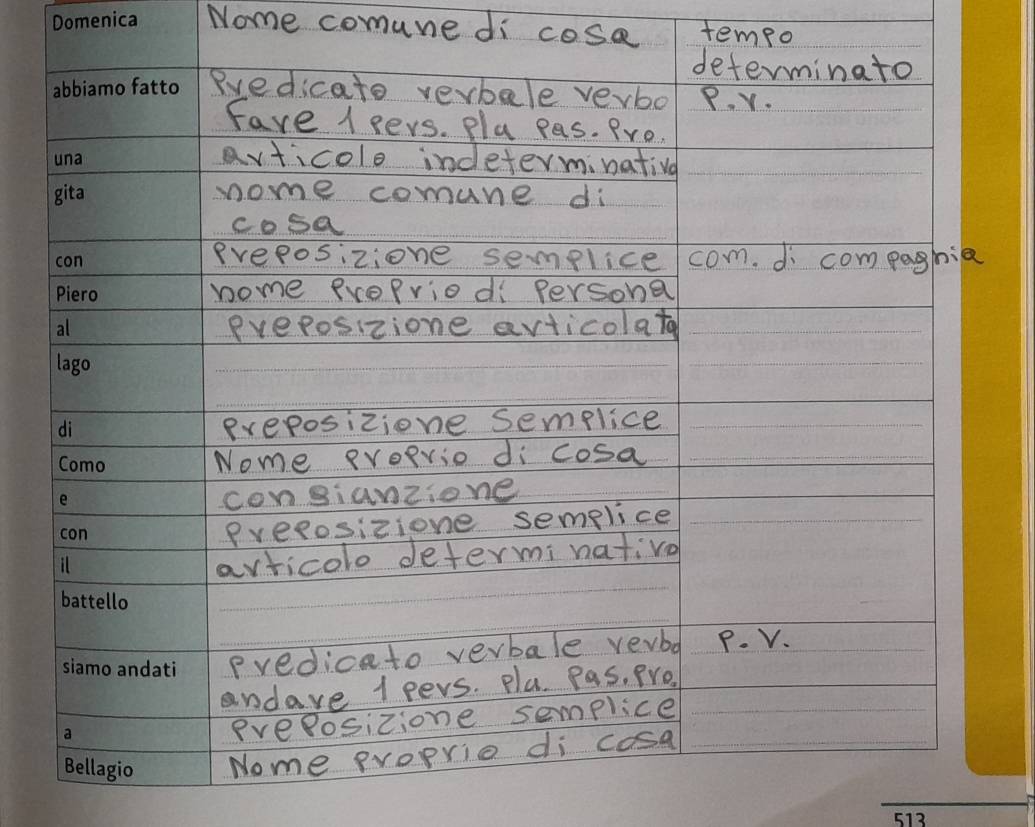 Domenica Nome comune di cosa tempo
determinato
abbiamo fatto Predicato verbale verbo P.V.
fare 1 pers. plu pas. pro.
una articolo indeterminativo
gita nome comune di
cosa
con preposizione semplice com. di compagnia
Piero nome proprio di persona
al preposizione articolata
lago
di preposizione semplice
Como Nome proprio di cosa
e consianzione
con preposizione semplice
il articolo determinativo
battello
siamo andati predicato verbale verbo P.V.
andare 1 pers. plu. pas. pro.
a preposizione semplice
Bellagio Nome proprio di cosa
513